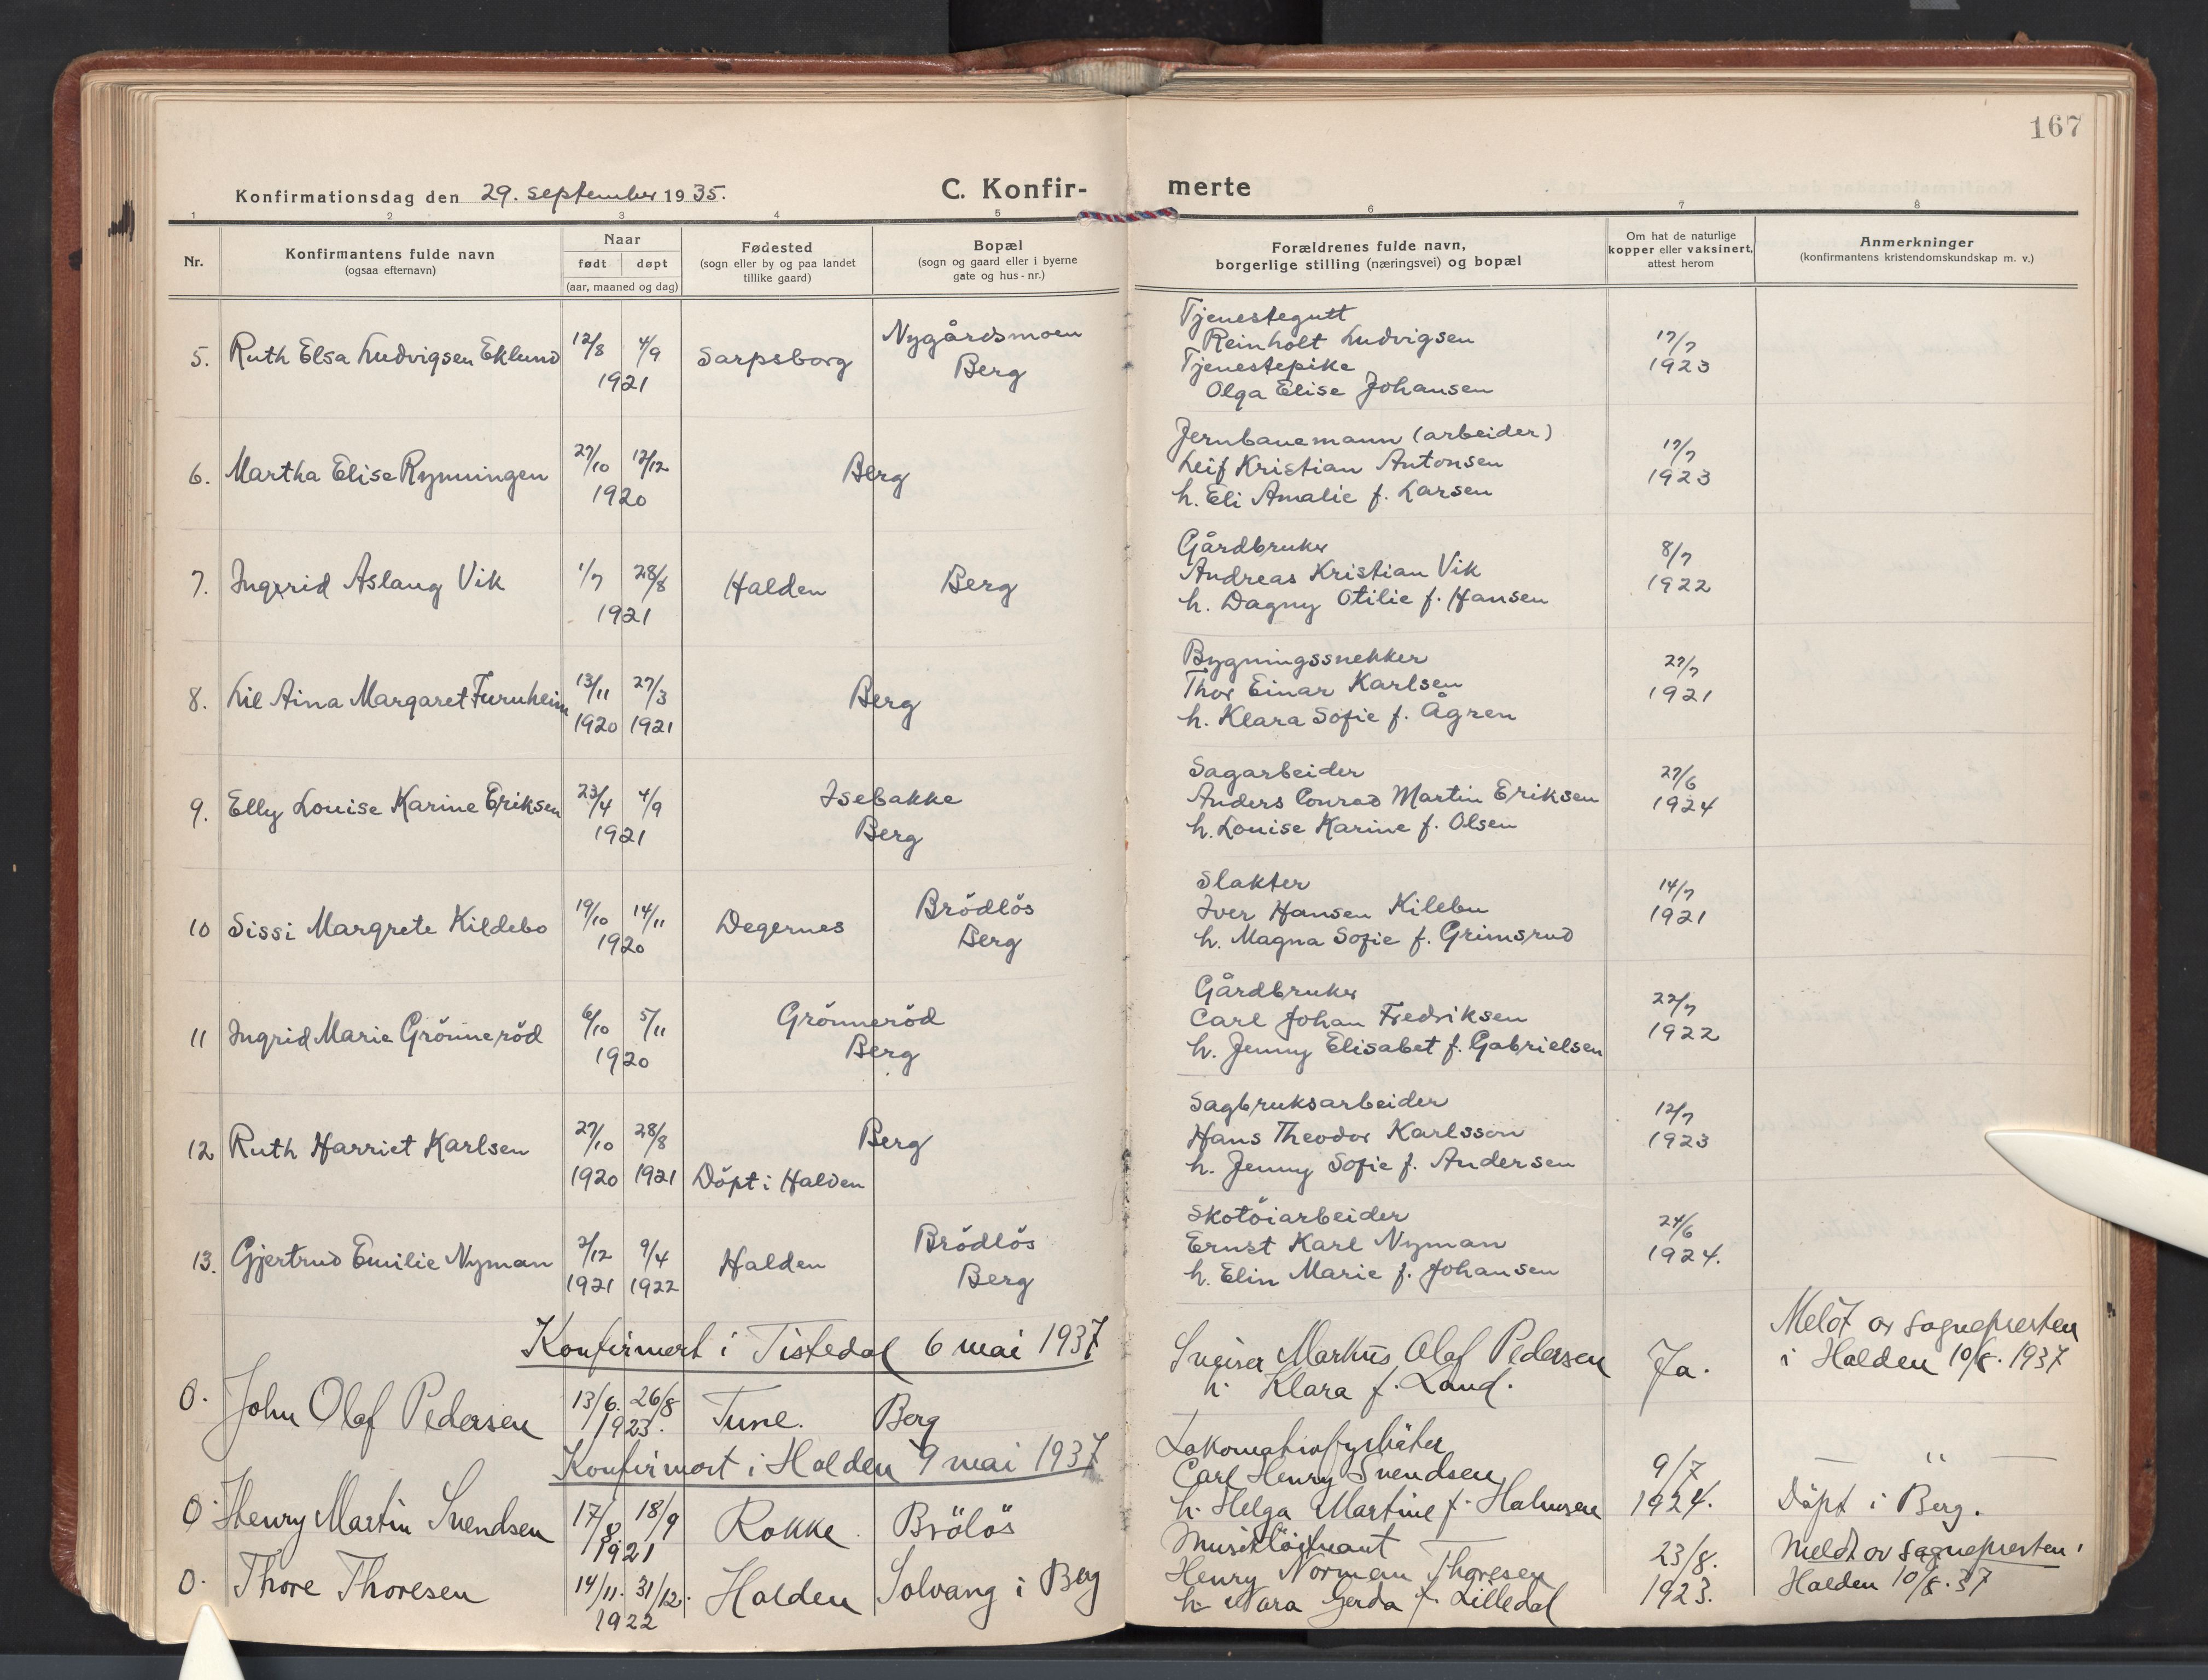 167
Konfirmationsdag den 29. september 1935.
C. Konfir-
merte
1 2 3 4 5 6 7 8
Nr.
Konfirmantens fulde navn
(ogsaa efternavn)
Naar
født døpt
(aar, maaned og dag)
Fødested
(sogn eller by og paa landet
tillike gaard)
Bopæl
(sogn og gaard eller i byerne
gate og hus - nr.)
Forældrenes fulde navn,
borgerlige stilling (næringsvei) og bopæl
Om hat de naturlige
kopper eller vaksinert,
attest herom
Anmerkninger
(konfirmantens kristendomskundskap m. v.)
5. Ruth Elsa Ludvigsen Eklund
12/8 4/9
1921
Sarpsborg
Nygårdsmoen
Berg
Tjenestegutt
Reinholt Ludvigsen
Tjenestepike
Olga Elise Johansen
17/7
1923
6. Martha Elise Rynningen
27/10 12/12
1920
Berg
Jernbanemann (arbeider)
Leif Kristian Antonsen
h. Eli Amalie f. Larsen
17/7
1923
7. Ingerid Aslaug Vik
1/7 28/8
1921
Halden
Berg
Gårdbruker
Andreas Kristian Vik
h. Dagny Otilie f. Hansen
8/7
1922
8. Lil Aina Margaret Furuheim
13/11 27/3
1920 1921
Berg
Bygningssnekker
Thor Einar Karlsen
h. Klara Sofie f. Ågren
27/7
1921
9. Elly Louise Karine Eriksen
23/4 4/9
1921
Isebakke
Berg
Sagarbeider
Anders Conrad Martin Eriksen
h. Louise Karine f. Olsen
27/6
1924
10 Sissi Margrete Kildebo
19/10 14/11
1920
Degernes
Brödlös
Berg
Slakter
Iver Hansen Kilebu
h. Magna Sofie f. Grimsrud
14/7
1921
11 Ingrid Marie Grönneröd
6/10 5/11
1920
Grönneröd
Berg
Gårdbruker
Carl Johan Fredriksen
h. Jenny Elisabet f. Gabrielsen
22/7
1922
12 Ruth Harriet Karlsen
27/10 28/8
1920 1921
Berg
Döpt i Halden
Sagbruksarbeider
Hans Theodor Karlsson
h. Jenny Sofie f. Andersen
12/7
1923
13. Gjertrud Emilie Nyman
2/12 9/4
1921 1922
Halden
Brödlös
Berg
Skotöiarbeider
Ernst Karl Nyman
h. Elin Marie f. Johansen
24/6
1924.
Konfirmert i Tistedal 6 mai 1937
0. John Olaf Pedersen
13/6. 26/8
1923.
Tune.
Berg
Markus Olaf Pedersen
h. Klara f. Lund.
Ja.
Meldt av sognepresten
i Halden 10/8. 1937
Konfirmert i Halden 9 mai 1937
0. Henry Martin Svendsen
17/8 18/9
1921
Rokke
Brölös
Lokomotivfyrbøter
Carl Henry Svendsen
h. Helga Martine f. Halvorsen
9/7
1924.
— " —
Döpt i Berg.
0. Thore Thoresen
14/11. 31/12.
1922
Halden
Solvang i Berg
Musikløitnant
Henry Norman Thoresen
h. Nora Gerda f. Lilledal
23/8.
1923.
Meldt av sognepresten i
Halden 10/8. 37